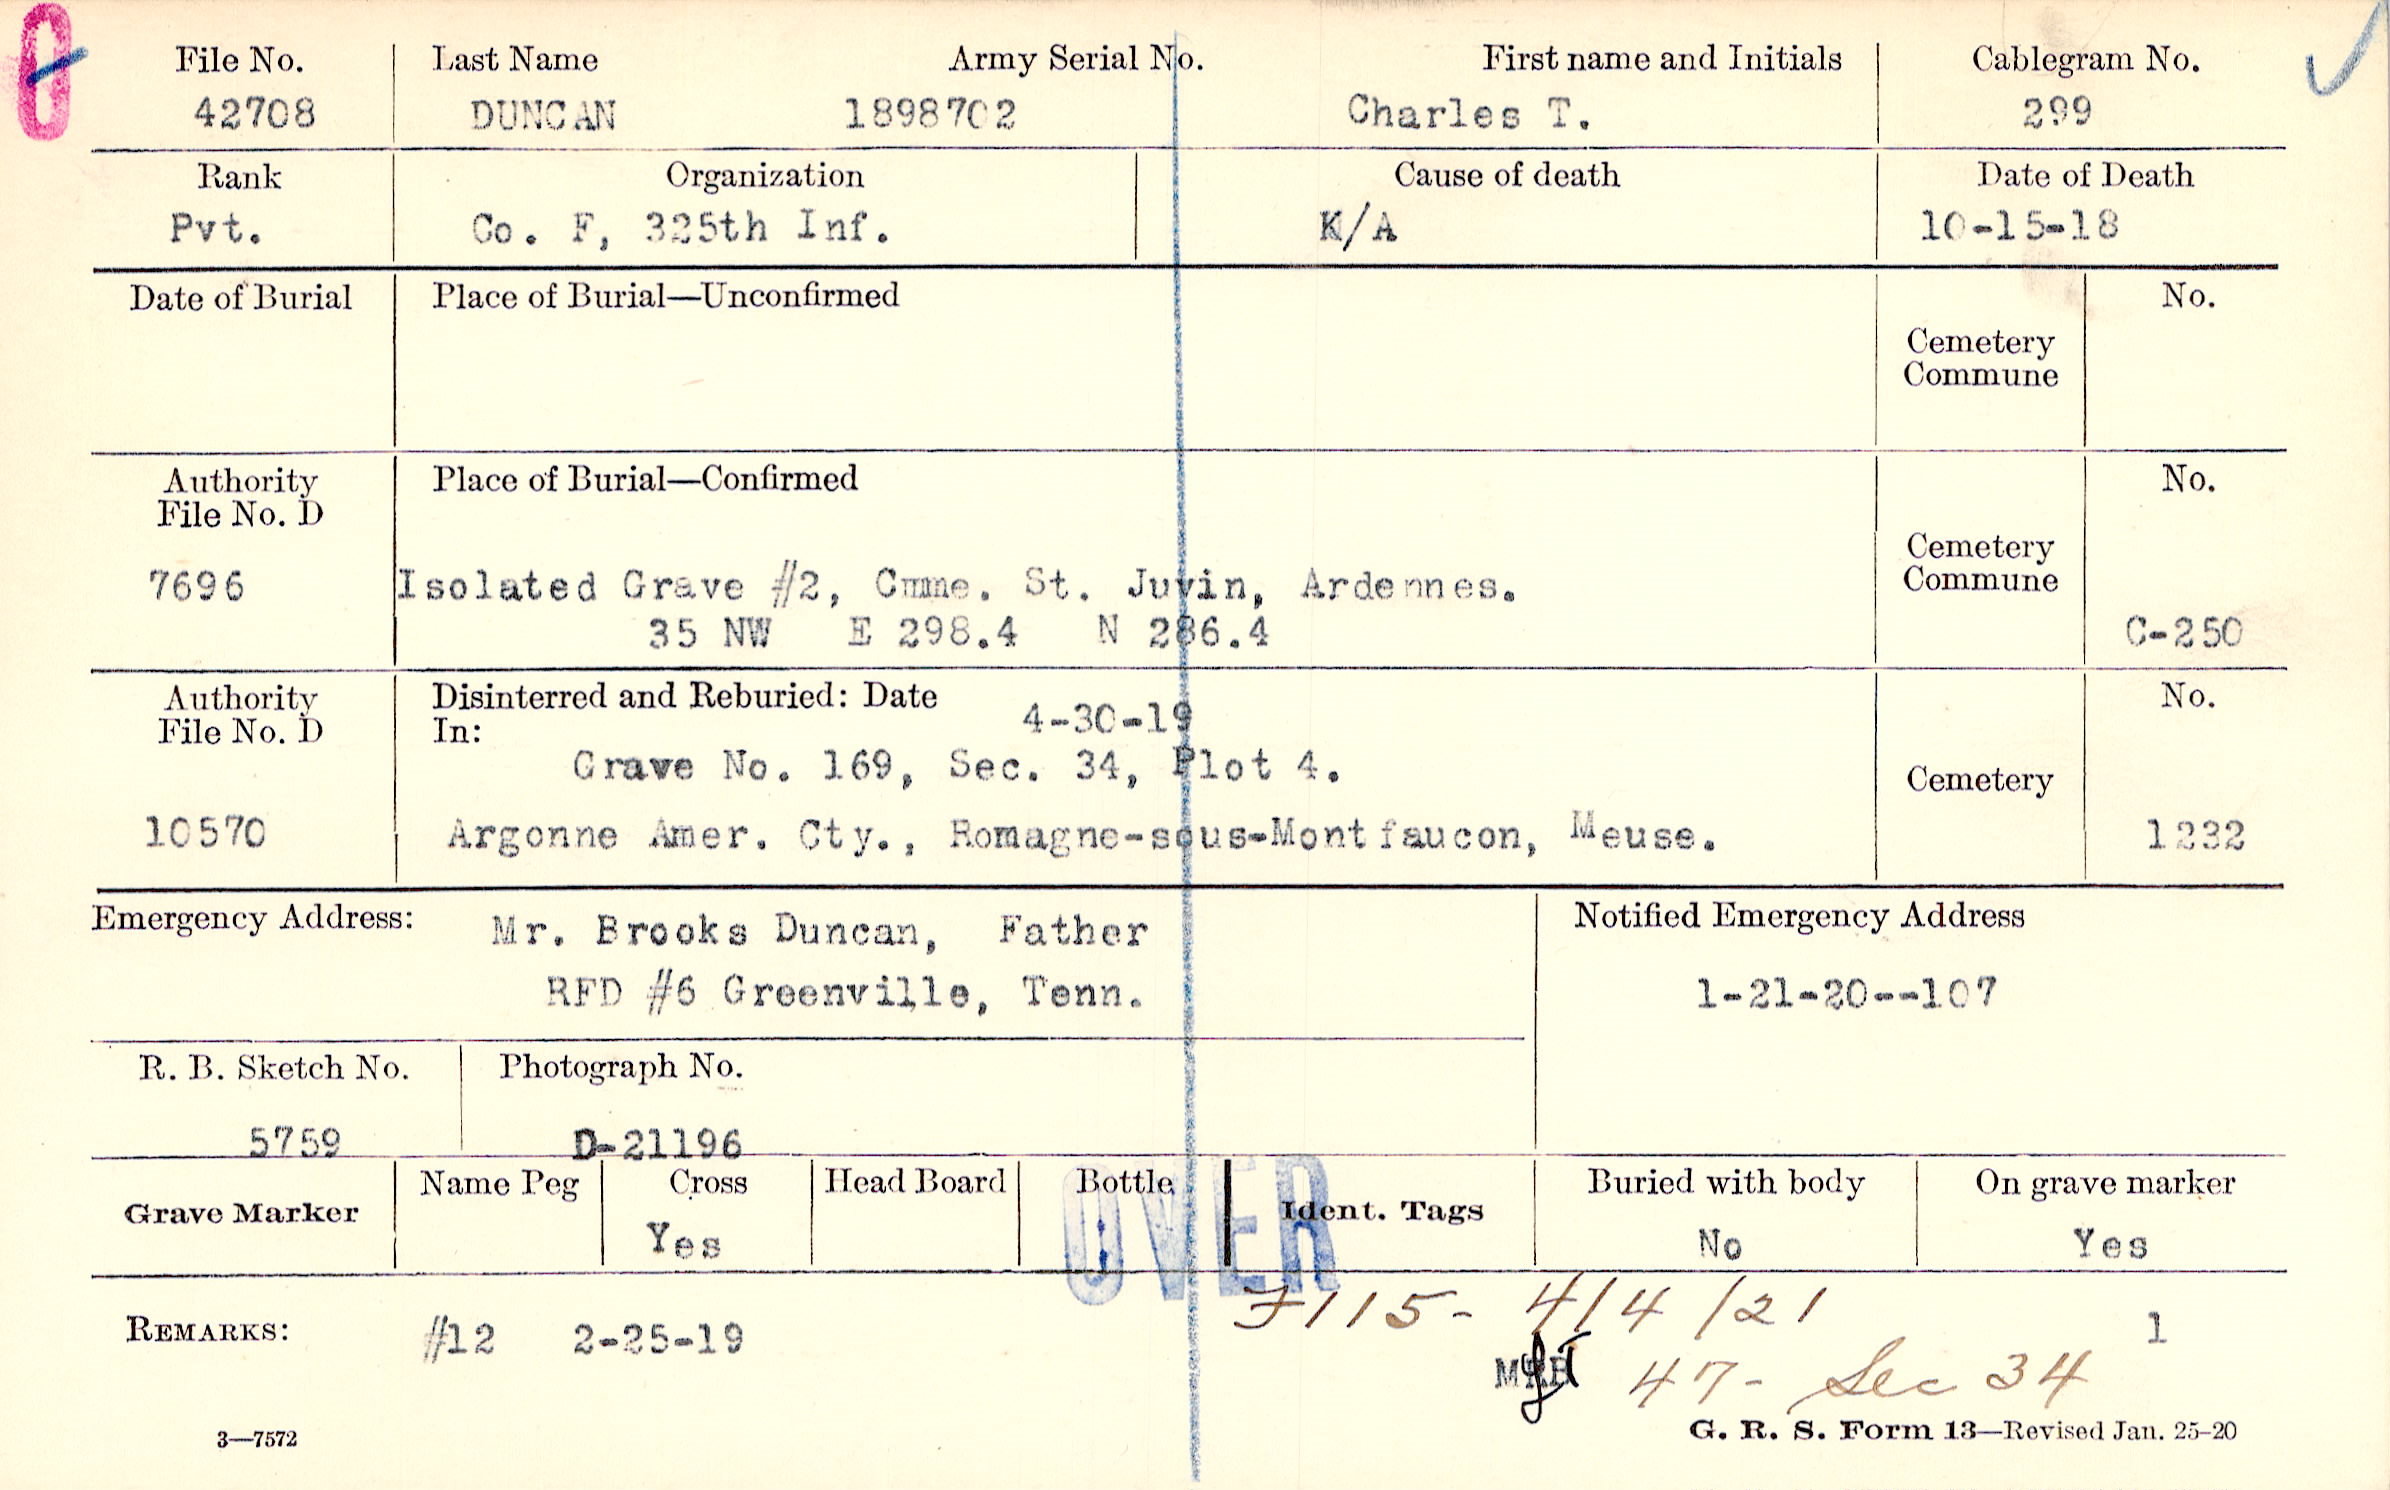 File No. Last Name Army Serial No. First name and Initials Cablegram No.
42708 DUNCAN 1898702 Charles T. 299
Rank Organization Cause of death Date of Death
Pvt. Co. F, 325th Inf. K/A 10-15-18
Date of Burial Place of Burial—Unconfirmed No.
Cemetery
Commune
Authority Place of Burial—Confirmed No.
File No. D
Cemetery
Commune
7696 Isolated Grave #2, Cmne. St. Juvin, Ardennes.
35 NW E 298.4 N 286.4 C-250
Authority Disinterred and Reburied: Date 4-30-19 No.
File No. D In:
Grave No. 169, Sec. 34, Plot 4.
Cemetery
10570 Argonne Amer. Cty., Romagne-sous-Montfaucon, Meuse. 1232
Emergency Address: Mr. Brooks Duncan, Father Notified Emergency Address
RFD #6 Greenville, Tenn. 1-21-20--107
R. B. Sketch No. Photograph No.
5759 D-21196
Grave Marker Name Peg Cross Head Board Bottle Ident. Tags Buried with body On grave marker
Yes No Yes
OVER
REMARKS: #12 2-25-19 F115- 4/4/21 1
47- Sec 34
3—7572 G. R. S. Form 13—Revised Jan. 25-20